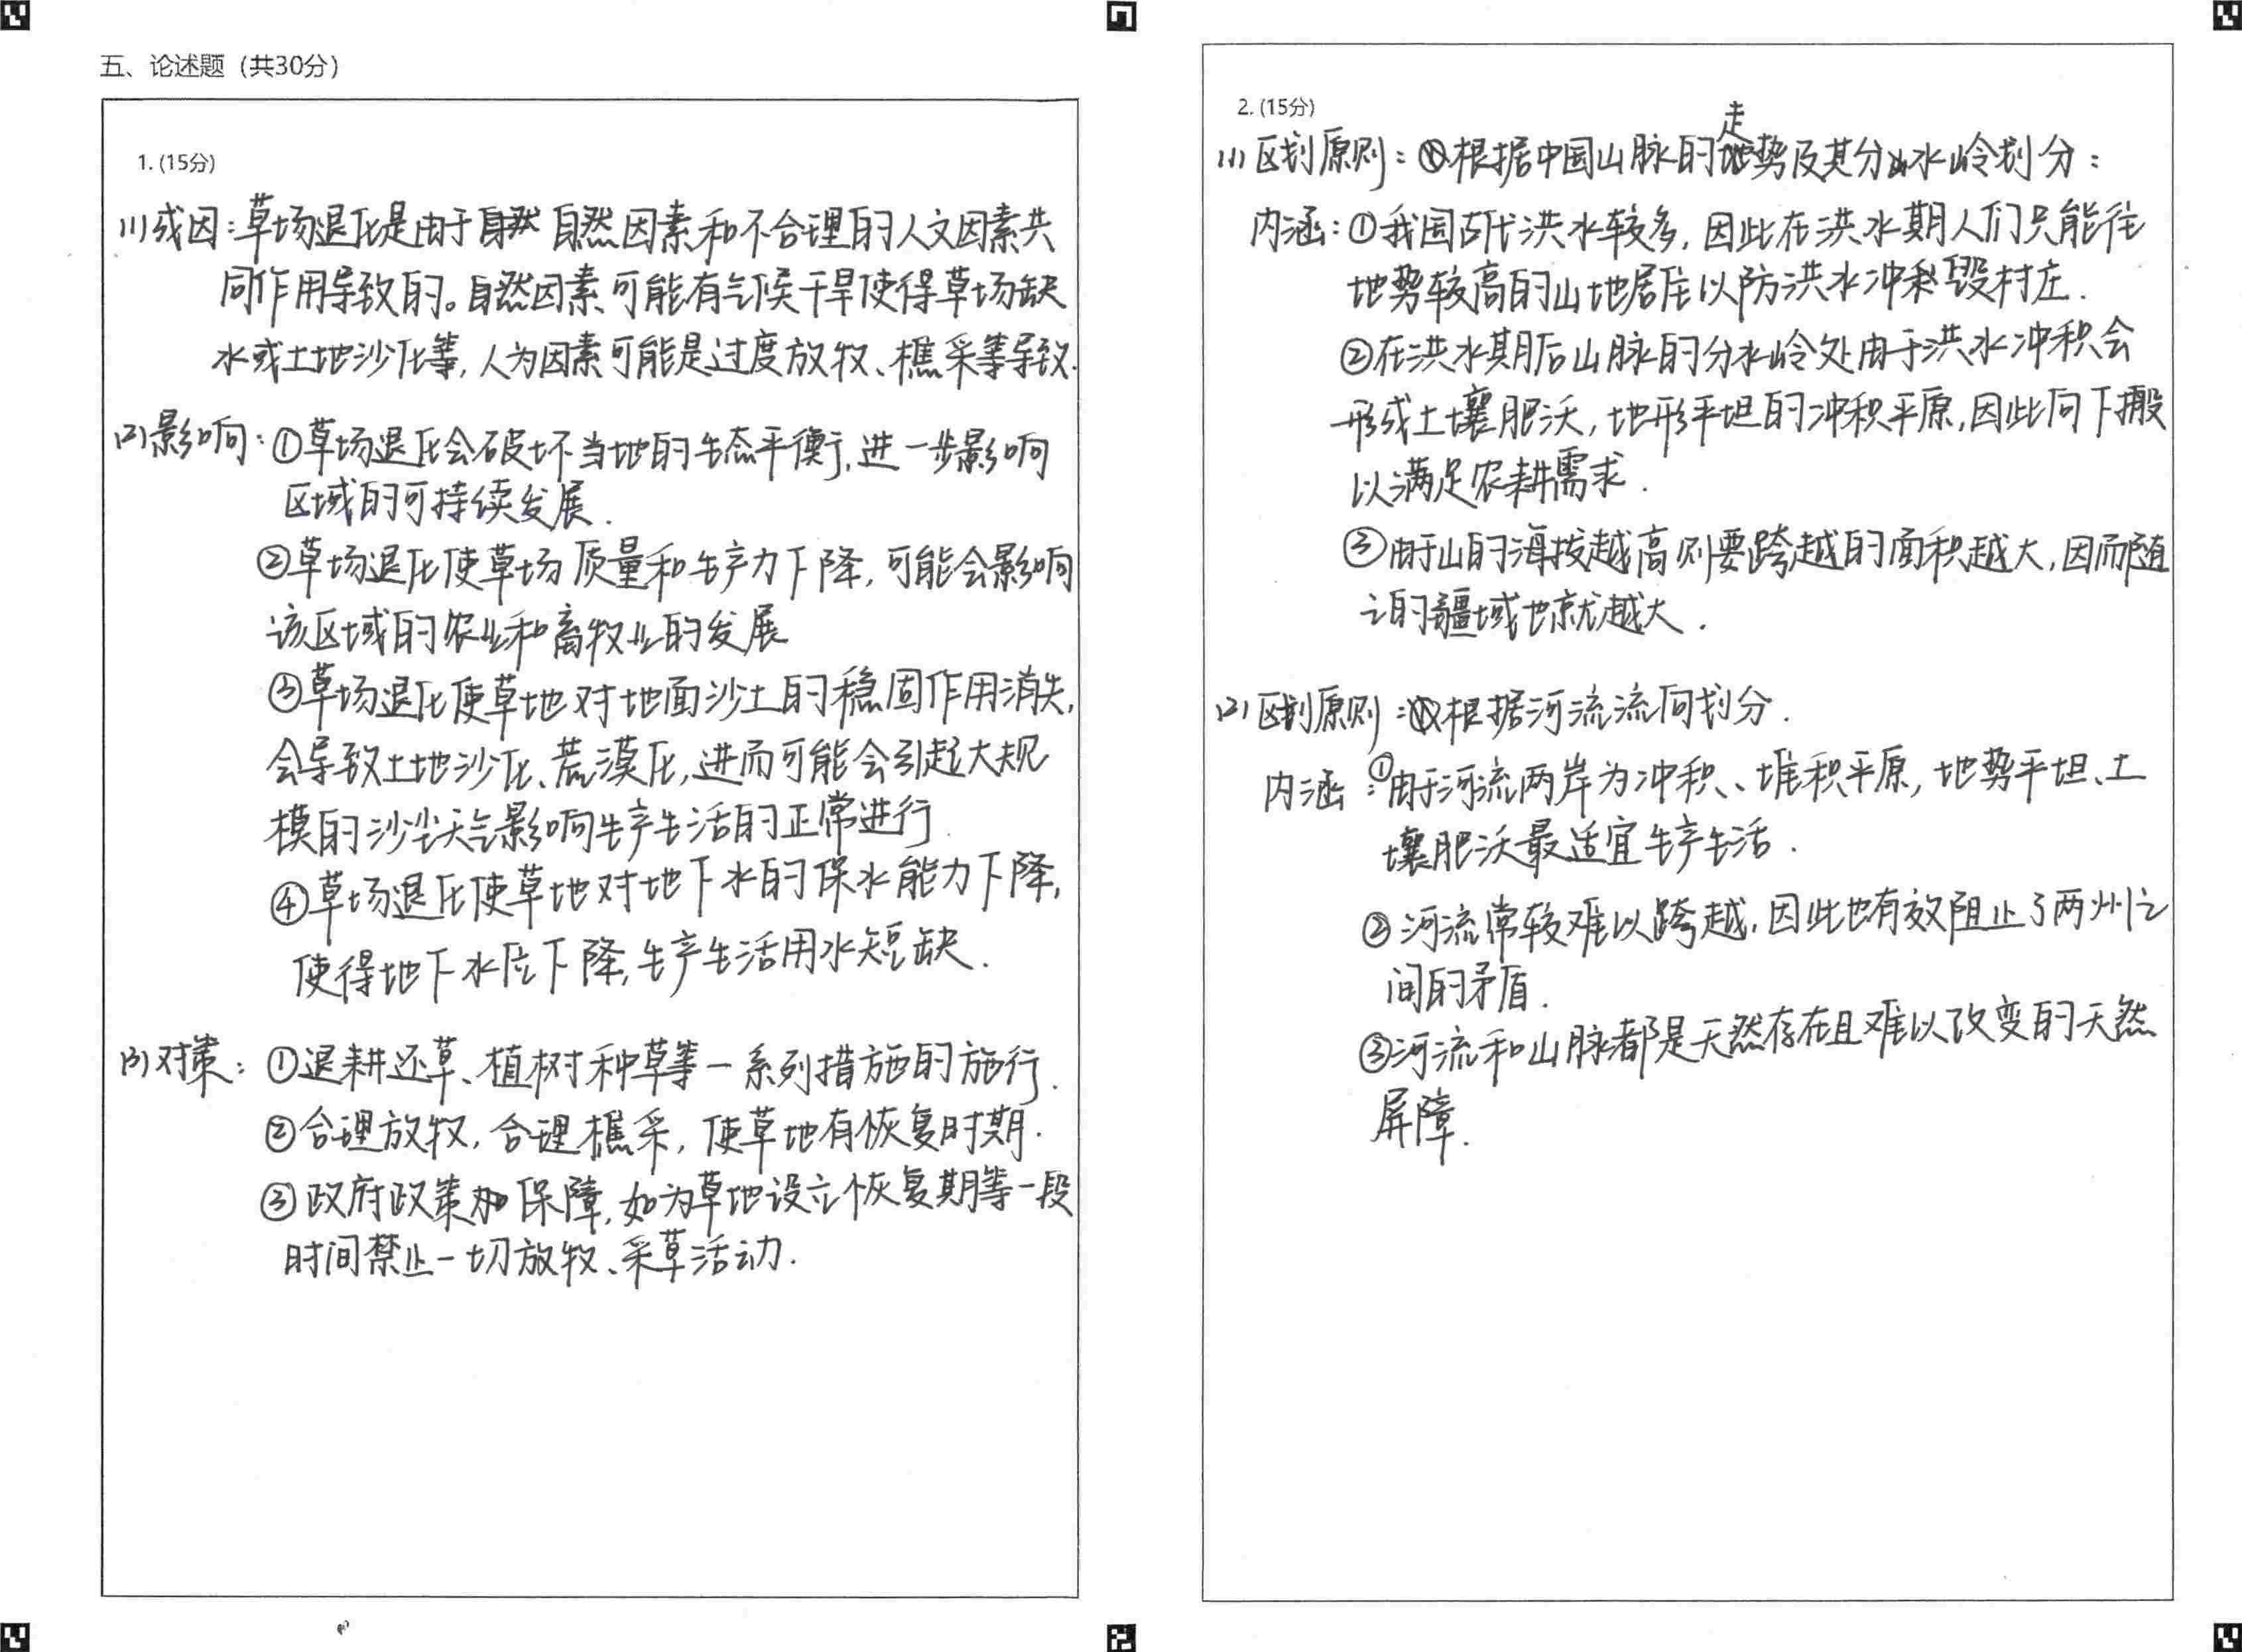 五、论述题（共30分）
1. (15分)
(1)成因：草场退化是由于自然因素和不合理的人文因素共
同作用导致的。自然因素可能有气候干旱使得草场缺
水或土地沙化等，人为因素可能是过度放牧、樵采等导致.
(2)影响：①草场退化会破坏当地的生态平衡，进一步影响
区域的可持续发展.
②草场退化使草场质量和生产力下降，可能会影响
该区域的农业和畜牧业的发展
③草场退化使草地对地面沙土的稳固作用消失，
会导致土地沙化、荒漠化，进而可能会引起大规
模的沙尘天气影响生产生活的正常进行.
④草场退化使草地对地下水的保水能力下降，
使得地下水位下降，生产生活用水短缺.
(3)对策：①退耕还草、植树种草等一系列措施的施行.
②合理放牧，合理樵采，使草地有恢复时期.
③政府政策保障，如为草地设立恢复期等一段
时间禁止一切放牧、采草活动.
2. (15分)
(1)区划原则：根据中国山脉的走势及其分水岭划分：
内涵：①我国古代洪水较多，因此在洪水期人们只能往
地势较高的山地居住以防洪水冲毁村庄.
②在洪水期后山脉的分水岭处由于洪水冲积会
形成土壤肥沃，地形平坦的冲积平原，因此向下搬
以满足农耕需求.
③由于山的海拔越高则要跨越的面积越大，因而随
之的疆域也就越大.
(2)区划原则：根据河流流向划分.
内涵：①由于河流两岸为冲积、堆积平原，地势平坦、土
壤肥沃最适宜生产生活.
②河流常较难以跨越，因此也有效阻止了两州之
间的矛盾.
③河流和山脉都是天然存在且难以改变的天然
屏障.